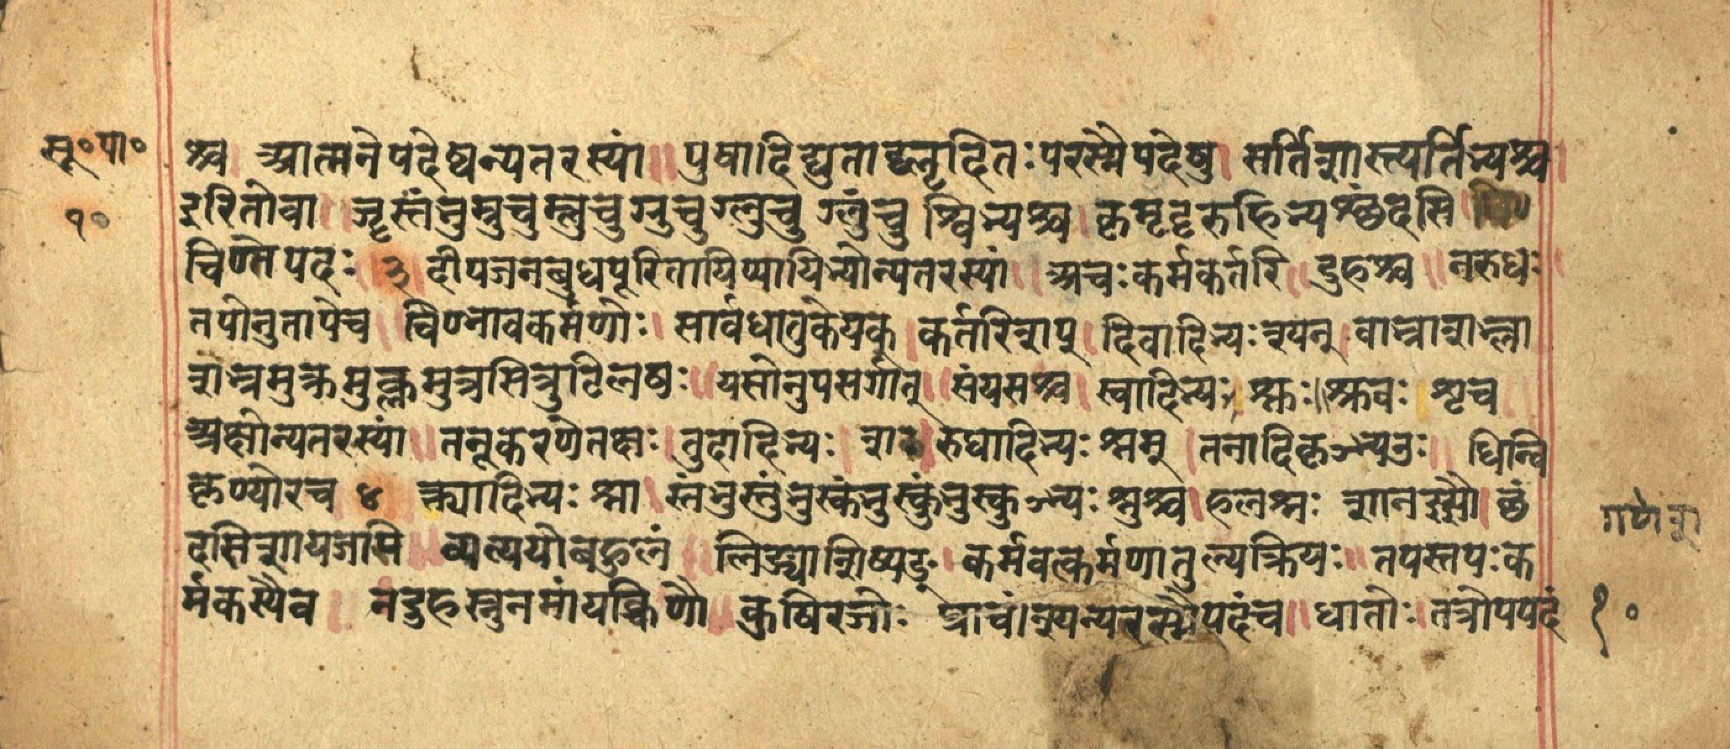 सू॰पा॰
१०
श्च आत्मनेपदेष्वन्यतरस्यां ॥ पुषादिद्युताद्यॢदितः परस्मैपदेषु । सर्तिशास्त्यर्तिभ्यश्च ।
इरितोवा । जॄस्तंभुम्रुचुम्लुचुग्रुचुग्लुचु ग्लुंचु श्विभ्यश्च । कृमृदृरुहिभ्यश्छंदसि ।
चिण्तेपदः ॥ ३ दीपजनबुधपूरितायिप्यायिभ्योन्यतरस्यां ॥ अचःकर्मकर्तरि ॥ दुहश्च ॥ नरुधः ॥
तपोनुतापेच चिण्भावकर्मणोः । सार्वधातुकेयक् । कर्तरिशप् । दिवादिभ्यः श्यन् । वाभ्राशभ्ला
शभ्रमुक्रमुक्लमुत्रसित्रुटिलषः ॥ यसोनुपसर्गात् ॥ संयसश्च । स्वादिभ्यः श्नुः ॥ श्रुवः शृच
अक्षोन्यतरस्यां ॥ तनूकरणेतक्षः । तुदादिभ्यः शः । रुधादिभ्यः श्नम् । तनादिकृञ्भ्यउः ॥ धिन्वि
कृण्व्योरच ४ क्र्यादिभ्यः श्ना । स्तंभुस्तुंभुस्कंभुस्कुंभुस्कुञ्भ्यः श्नुश्च । हलश्नः शानज्झौ । छं
दसिशायजपि ॥ व्यत्ययोबहुलं ॥ लिङ्याशिष्यङ् । कर्मवत्कर्मणातुल्यक्रियः ॥ तपस्तपःक
र्मकस्यैव ॥ नदुहस्नुनमांयक्चिणौ ॥ कुषिरजोः प्राचां श्यन्परस्मैपदंच ॥ धातोः । तत्रोपपदं
१०